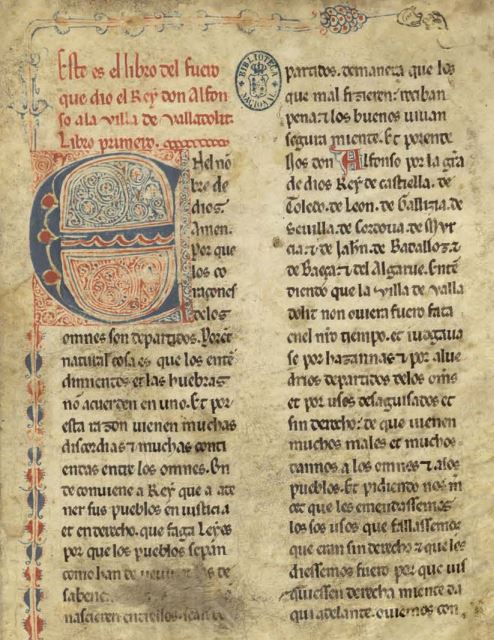 Este es el libro del fuero
que dio el Rey don Alfon
so a la villa de valladolit
Libro primero.
En el nõ
bre de
dios
Amen.
Por que
los co
raçones
delos
omnes son departidos. Porẽt
natural cosa es que los entẽ
dimientos et las huebras
nõ acuerden en uno. Et por
esta razon uienen muchas
discordias ⁊ muchas conti
endas entre los omnes. On
de conuiene a Rey que a a te
ner sus pueblos en iusticia
et en derecho. que faga Leyes
por que los pueblos sepan
como han de
nascieren entrellos
BIBLIOTECA NACIONAL
partidos. demanera que los
que mal fizieren: reciban
pena: ⁊ los buenos uiuan
segura miente. Et porende
Nos don Alfonso por la gr̃a
de dios Rey de castiella. de
Toledo. de Leon. de Gallizia. de
Seuilla. de Cordoua. de Mur
cia. ⁊ de Jahñ. de Badalloz. ⁊
de Baeça. ⁊ del Algarue. Entẽ
diendo que la villa de valla
dolit non ouiera fuero fata
enel nr̃o tiempo. et iuzgaua
se por hazannas ⁊ por alue
drios departidos delos om̃s
et por usos desaguisados et
sin derecho: de que uienen
muchos males et muchos
dannos a los omnes ⁊ alos
pueblos. Et pidiendo nos m̃
cet que les emendassemos
los sos usos que fallassemos
que eran sin derecho ⁊ que les
diessemos fuero por que uis
quiessen derecha miente da
qui adelante. ouiemos con